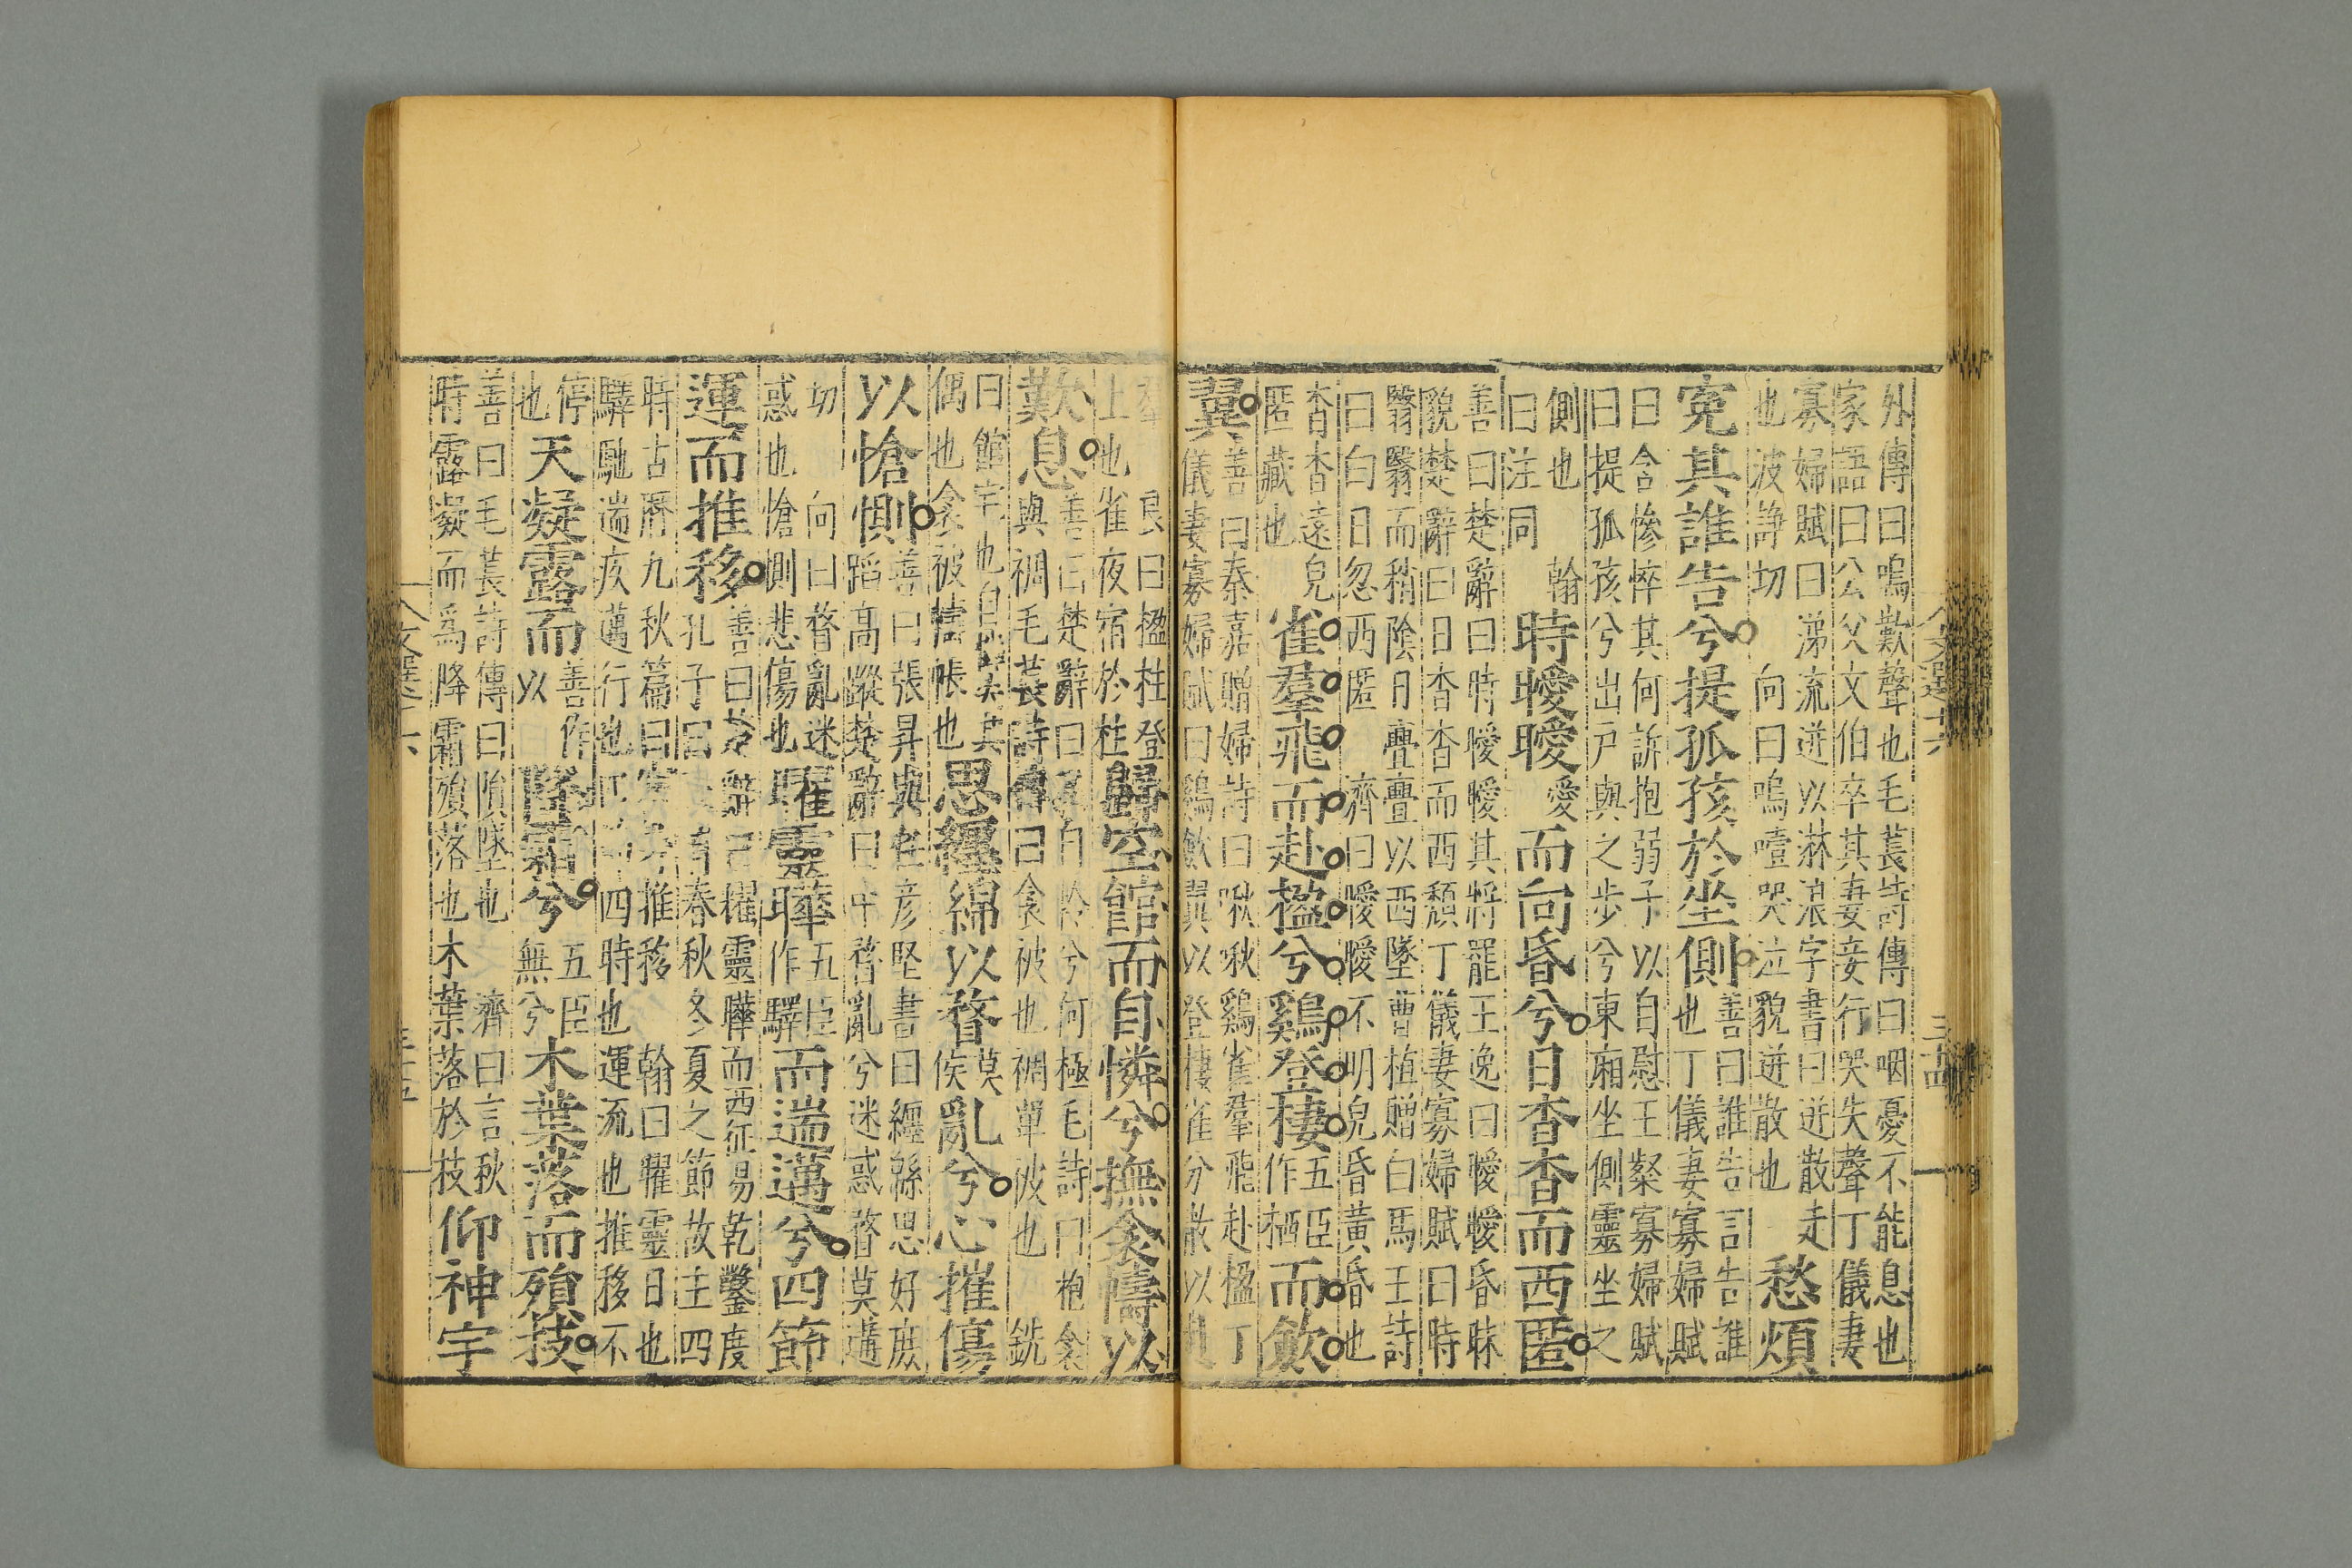 文選十六
三十四
外傳曰嗚歎聲也毛萇詩傳曰咽憂不能息也
家語曰公父文伯卒其妻妾行哭失聲丁儀妻
寡婦賦曰涕流迸以淋浪字書曰迸散走
也波諍切 向曰嗚噎哭泣貌迸散也
愁煩
寃其誰告兮提孤孩於坐側
善曰誰告言告誰
也丁儀妻寡婦賦
曰含慘悴其何訴抱弱子以自慰王粲寡婦賦
曰提孤孩兮出戸與之步兮東廂坐側靈坐之
側也 翰
曰注同
時曖曖愛而向昏兮日杳杳而西匿
善曰楚辭曰時曖曖其將罷王逸曰曖曖昏昧
貌楚辭曰日杳杳而西頹丁儀妻寡婦賦曰時
翳翳而稍陰日亹亹以西墜曹植贈白馬王詩
曰白日忽西匿 濟曰曖曖不明皃昏黃昏也
杳杳遠皃
匿藏也
雀羣飛而赴楹兮鷄登棲五臣作栖而斂
翼
善曰秦嘉贈婦詩曰啾啾鷄雀羣飛赴楹丁
儀妻寡婦賦曰鷄斂翼以登棲雀分散以赴
羣 良曰楹柱登
上也雀夜宿於柱
歸空館而自憐兮撫衾幬以
歎息
善曰楚辭曰自憐兮何極毛詩曰抱衾
與裯毛萇詩傳曰衾被也裯單被也 銑
曰館宇也自憐失其
偶也衾被幬帳也
思纏綿以瞀莫侯亂兮心摧傷
以愴惻
善曰張昇與任彦堅書曰纏緜恩好庶
蹈高蹤楚辭曰中瞀亂兮迷惑瞀莫遘
切 向曰瞀亂迷
惑也愴惻悲傷也
曜靈曄五臣作驛而遄邁兮四節
運而推移
善曰楚辭曰耀靈曄而西征易乾鑿度
孔子曰有春秋冬夏之節故主四
時古曆九秋篇曰推移 翰曰曜靈日也
驛馳遄疾邁行也四時也運流也推移不
停
也
天凝露而善作以隆霜兮五臣無兮木葉落而殞枝
善曰毛萇詩傳曰隕墜也 濟曰言秋
時露凝而爲降霜殞落也木葉落於枝
仰神宇
文選十六
三十五